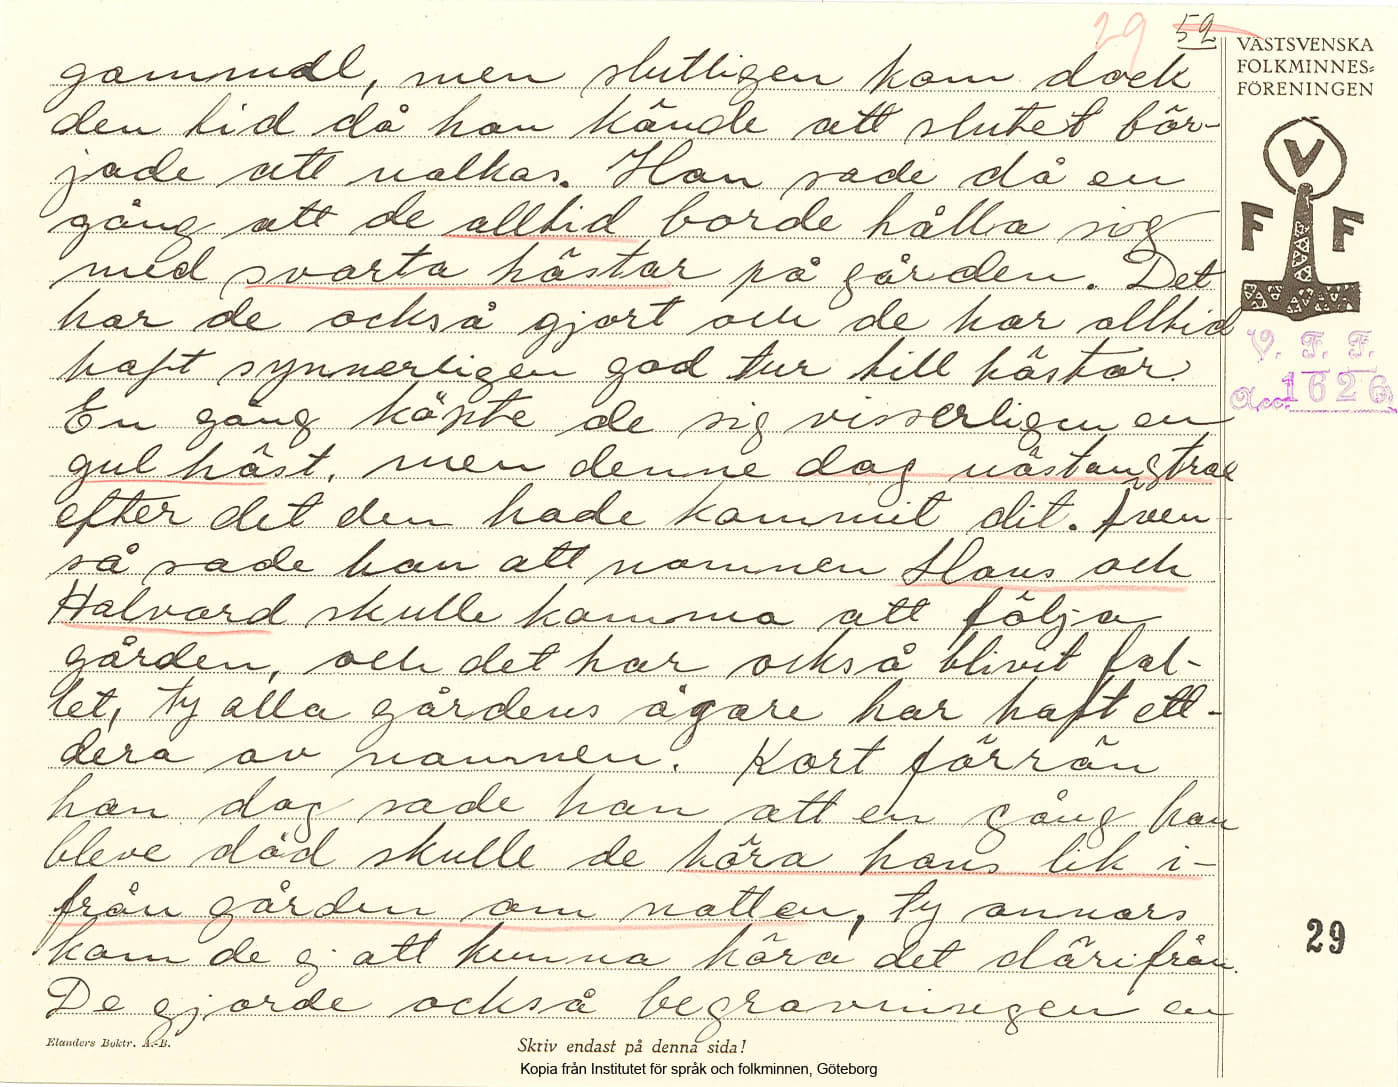 29 52
VÄSTSVENSKA
FOLKMINNES=
FÖRENINGEN
V
F F
V. F. F.
Acc. 1626
gammal, men slutligen kom dock
den tid då han kände att slutet bör-
jade att nalkas. Han sade då en
gång att de alltid borde hålla sig
med svarta hästar på gården. Det
har de också gjort och de har alltid
haft synnerligen god tur till hästar.
En gång köpte de sig visserligen en
gul häst, men denne dog nästangtrax
efter det den hade kommit dit. Även-
så sade han att namnen Hans och
Halvard skulle komma att följa
gården, och det har också blivit fal-
let, ty alla gårdens ägare har haft ett-
dera av namnen. Kort förrän
han dog sade han att en gång han
bleve död skulle de köra hans lik i-
från gården om natten, ty annars
kom de ej att kunna köra det därifrån.
De gjorde också begravningen en
29
Elanders Boktr. A.-B.
Skriv endast på denna sida!
Kopia från Institutet för språk och folkminnen, Göteborg